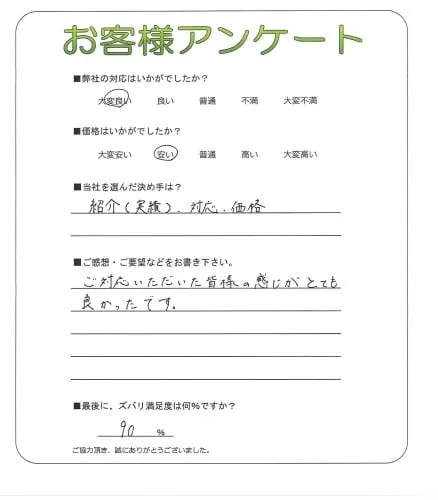 お客様アンケート
■弊社の対応はいかがでしたか？
大変良い 良い 普通 不満 大変不満
■価格はいかがでしたか？
大変安い 安い 普通 高い 大変高い
■当社を選んだ決め手は？
紹介(実績)、対応、価格
■ご感想・ご要望などをお書き下さい。
ご対応いただいた皆様の感じがとても
良かったです。
■最後に、ズバリ満足度は何%ですか？
90 %
ご協力頂き、誠にありがとうございました。